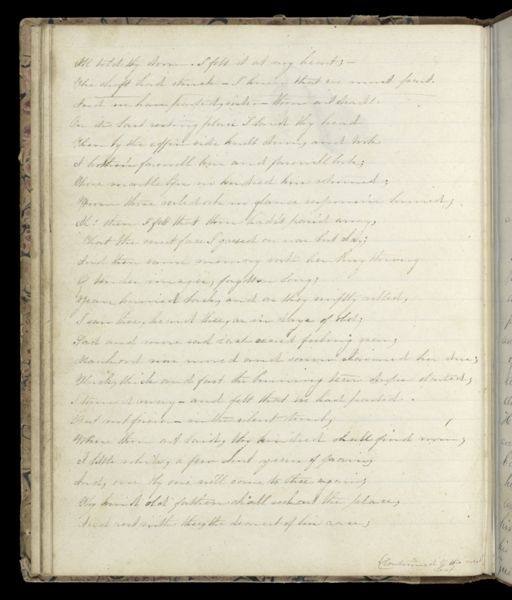 It told thy doom. I felt it at my heart; –
The shaft had struck – I knew that we must part
And we have parted, – thou art dead.
On its last resting place I laid thy head
Then by the coffin side knelt down, and took
A brother's farewell kiss and farewell look;
Those marble lips no kindred kiss returned;
From those veiled orbs no glance responsive burned;
Ah! then I felt that thou hadst passed away,
That the sweet face I gazed on was but clay;
And then came memory with her busy throng
Of tender images, forgotten long;
Years hurried back, and as they swiftly rolled,
I saw thee, heard thee, as in days of old;
Sad and more sad each sacred feeling grew,
Manhood was moved and sorrow claimed her due;
Thick, thick and fast the burning tear drops started,
I turned away – and felt that we had parted.
But not forever – in the silent tomb,
Where thou art laid, thy kindred shall find room;
A little while, a few short years of pain,
And, one by one we'll come to thee again;
Thy kind old father shall seek out the place,
And rest with thee, the dearest of his race;
(Continued of the next